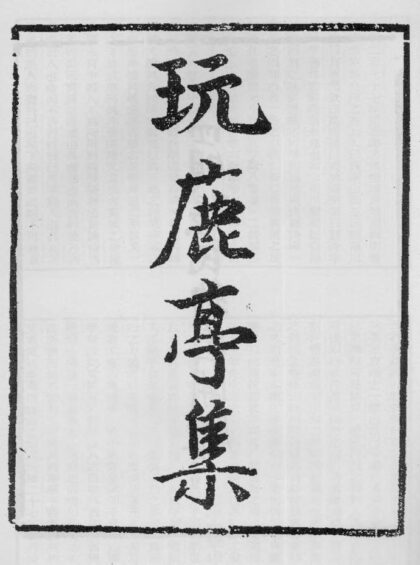 玩鹿亭集